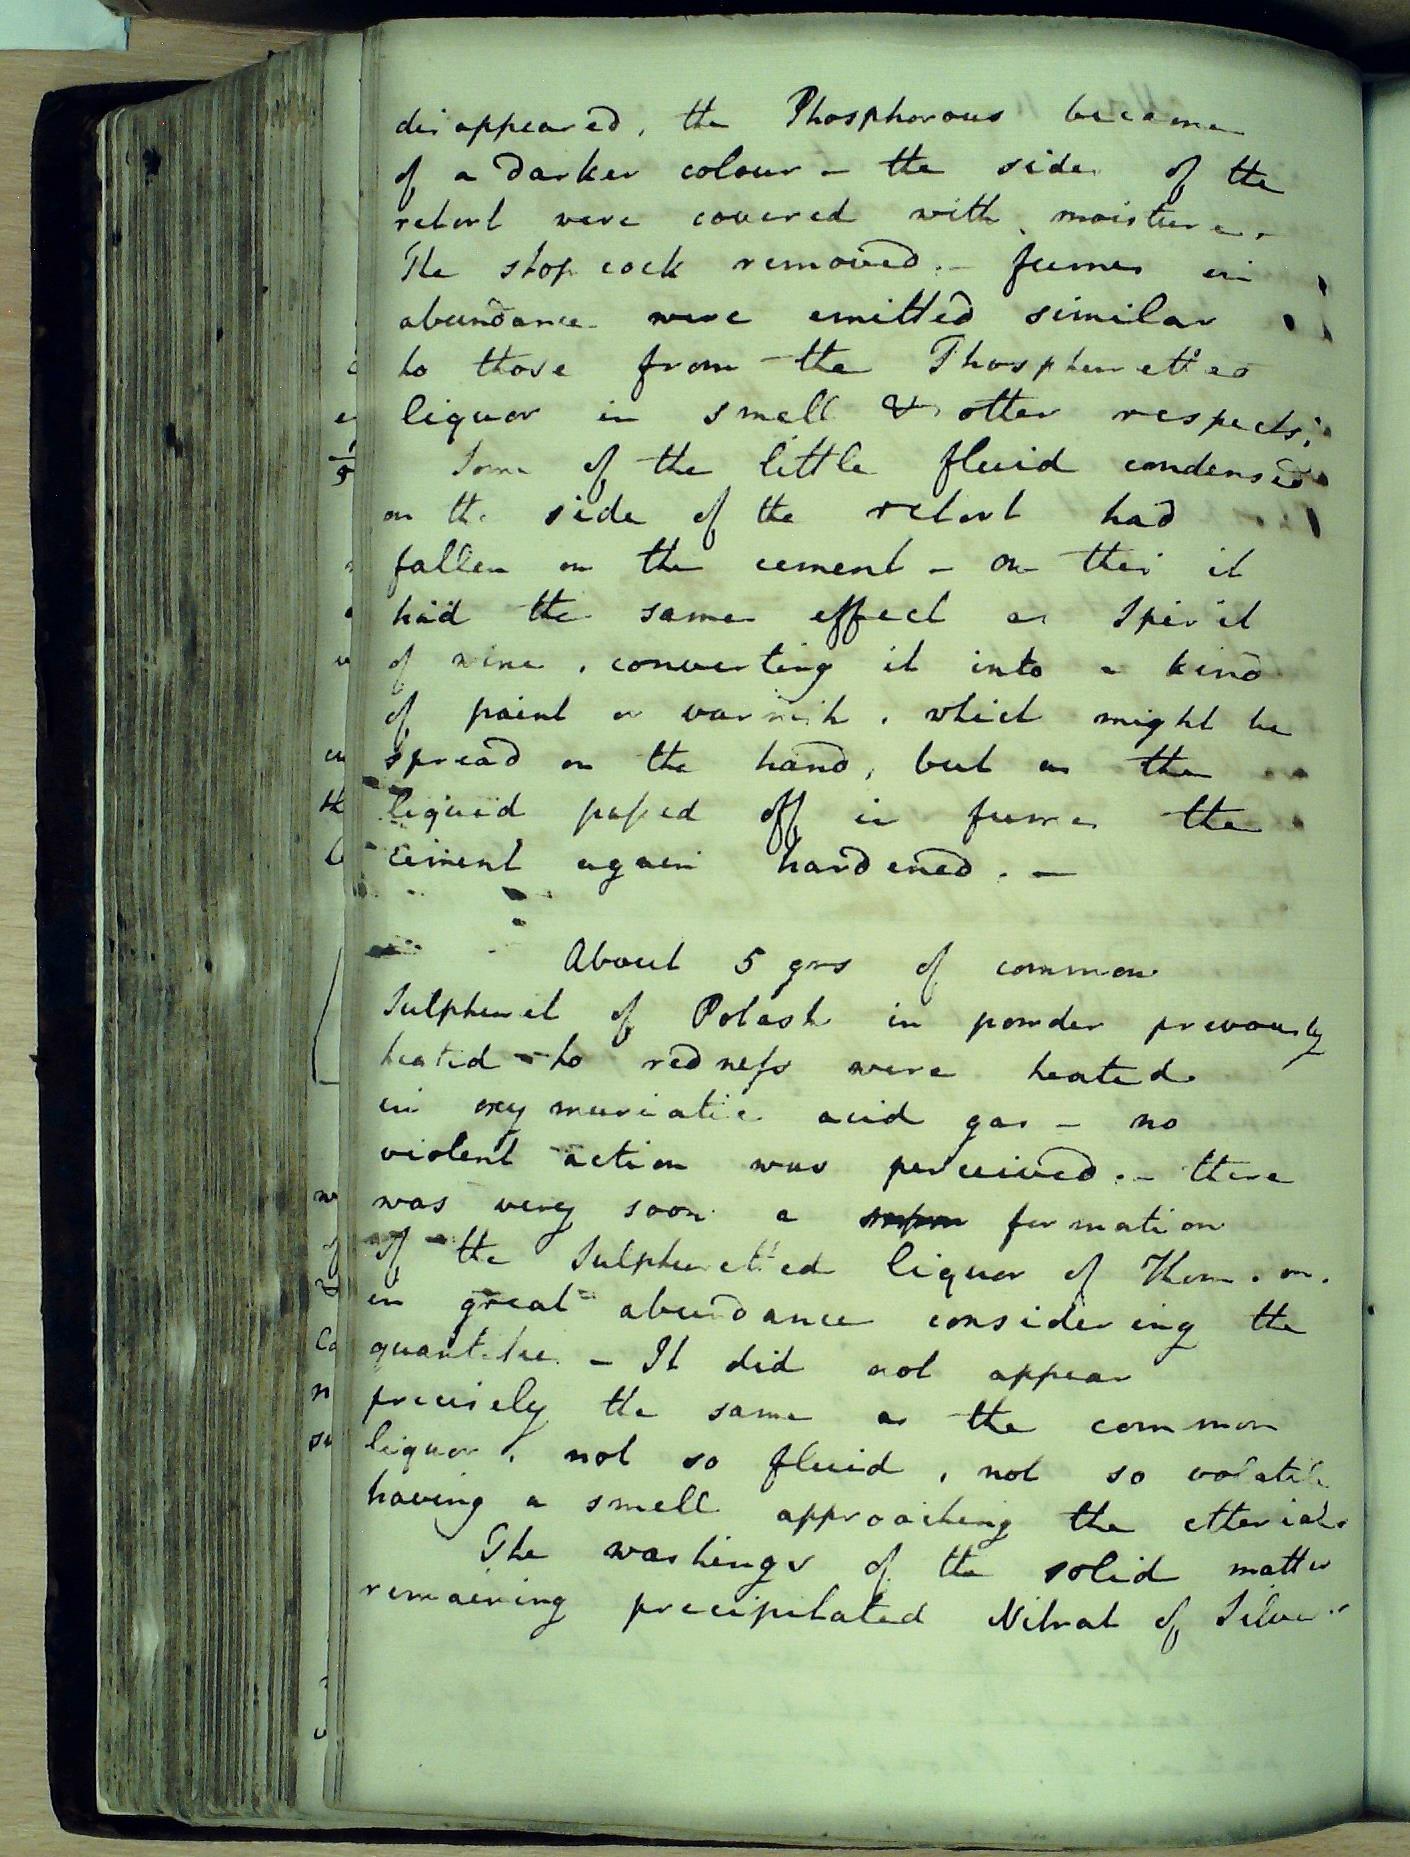 disappeared, the Phosphorous became
of a darker colour - the side of the
retort were covered with moisture.
The stop cock removed. - fumes in
abundance were emitted similar
to those from the Phosphuretted
liquor in smell & other respects.
Some of the little fluid condensed
on the side of the retort had
fallen on the cement - on this it
had the same effect as Spirit
of wine, converting it into a kind
of paint or varnish, which might be
spread on the hand, but as the
liquid passed off in fumes the
cement again hardened. -
About 5 grs of common
Sulphuret of Potash in powder prevously
heated to redness were heated
in oxymuriatic acid gas - no
violent action was perceived. - there
was very soon a formation
of the Sulphuretted liquor of Thomson.
in great abundance considering the
quantities. - It did not appear
precisely the same as the common
liquor, not so fluid, not so volatile
having a smell approaching the etherial.
The washings of the solid matter
remaining precipitated Nitrat of Silver